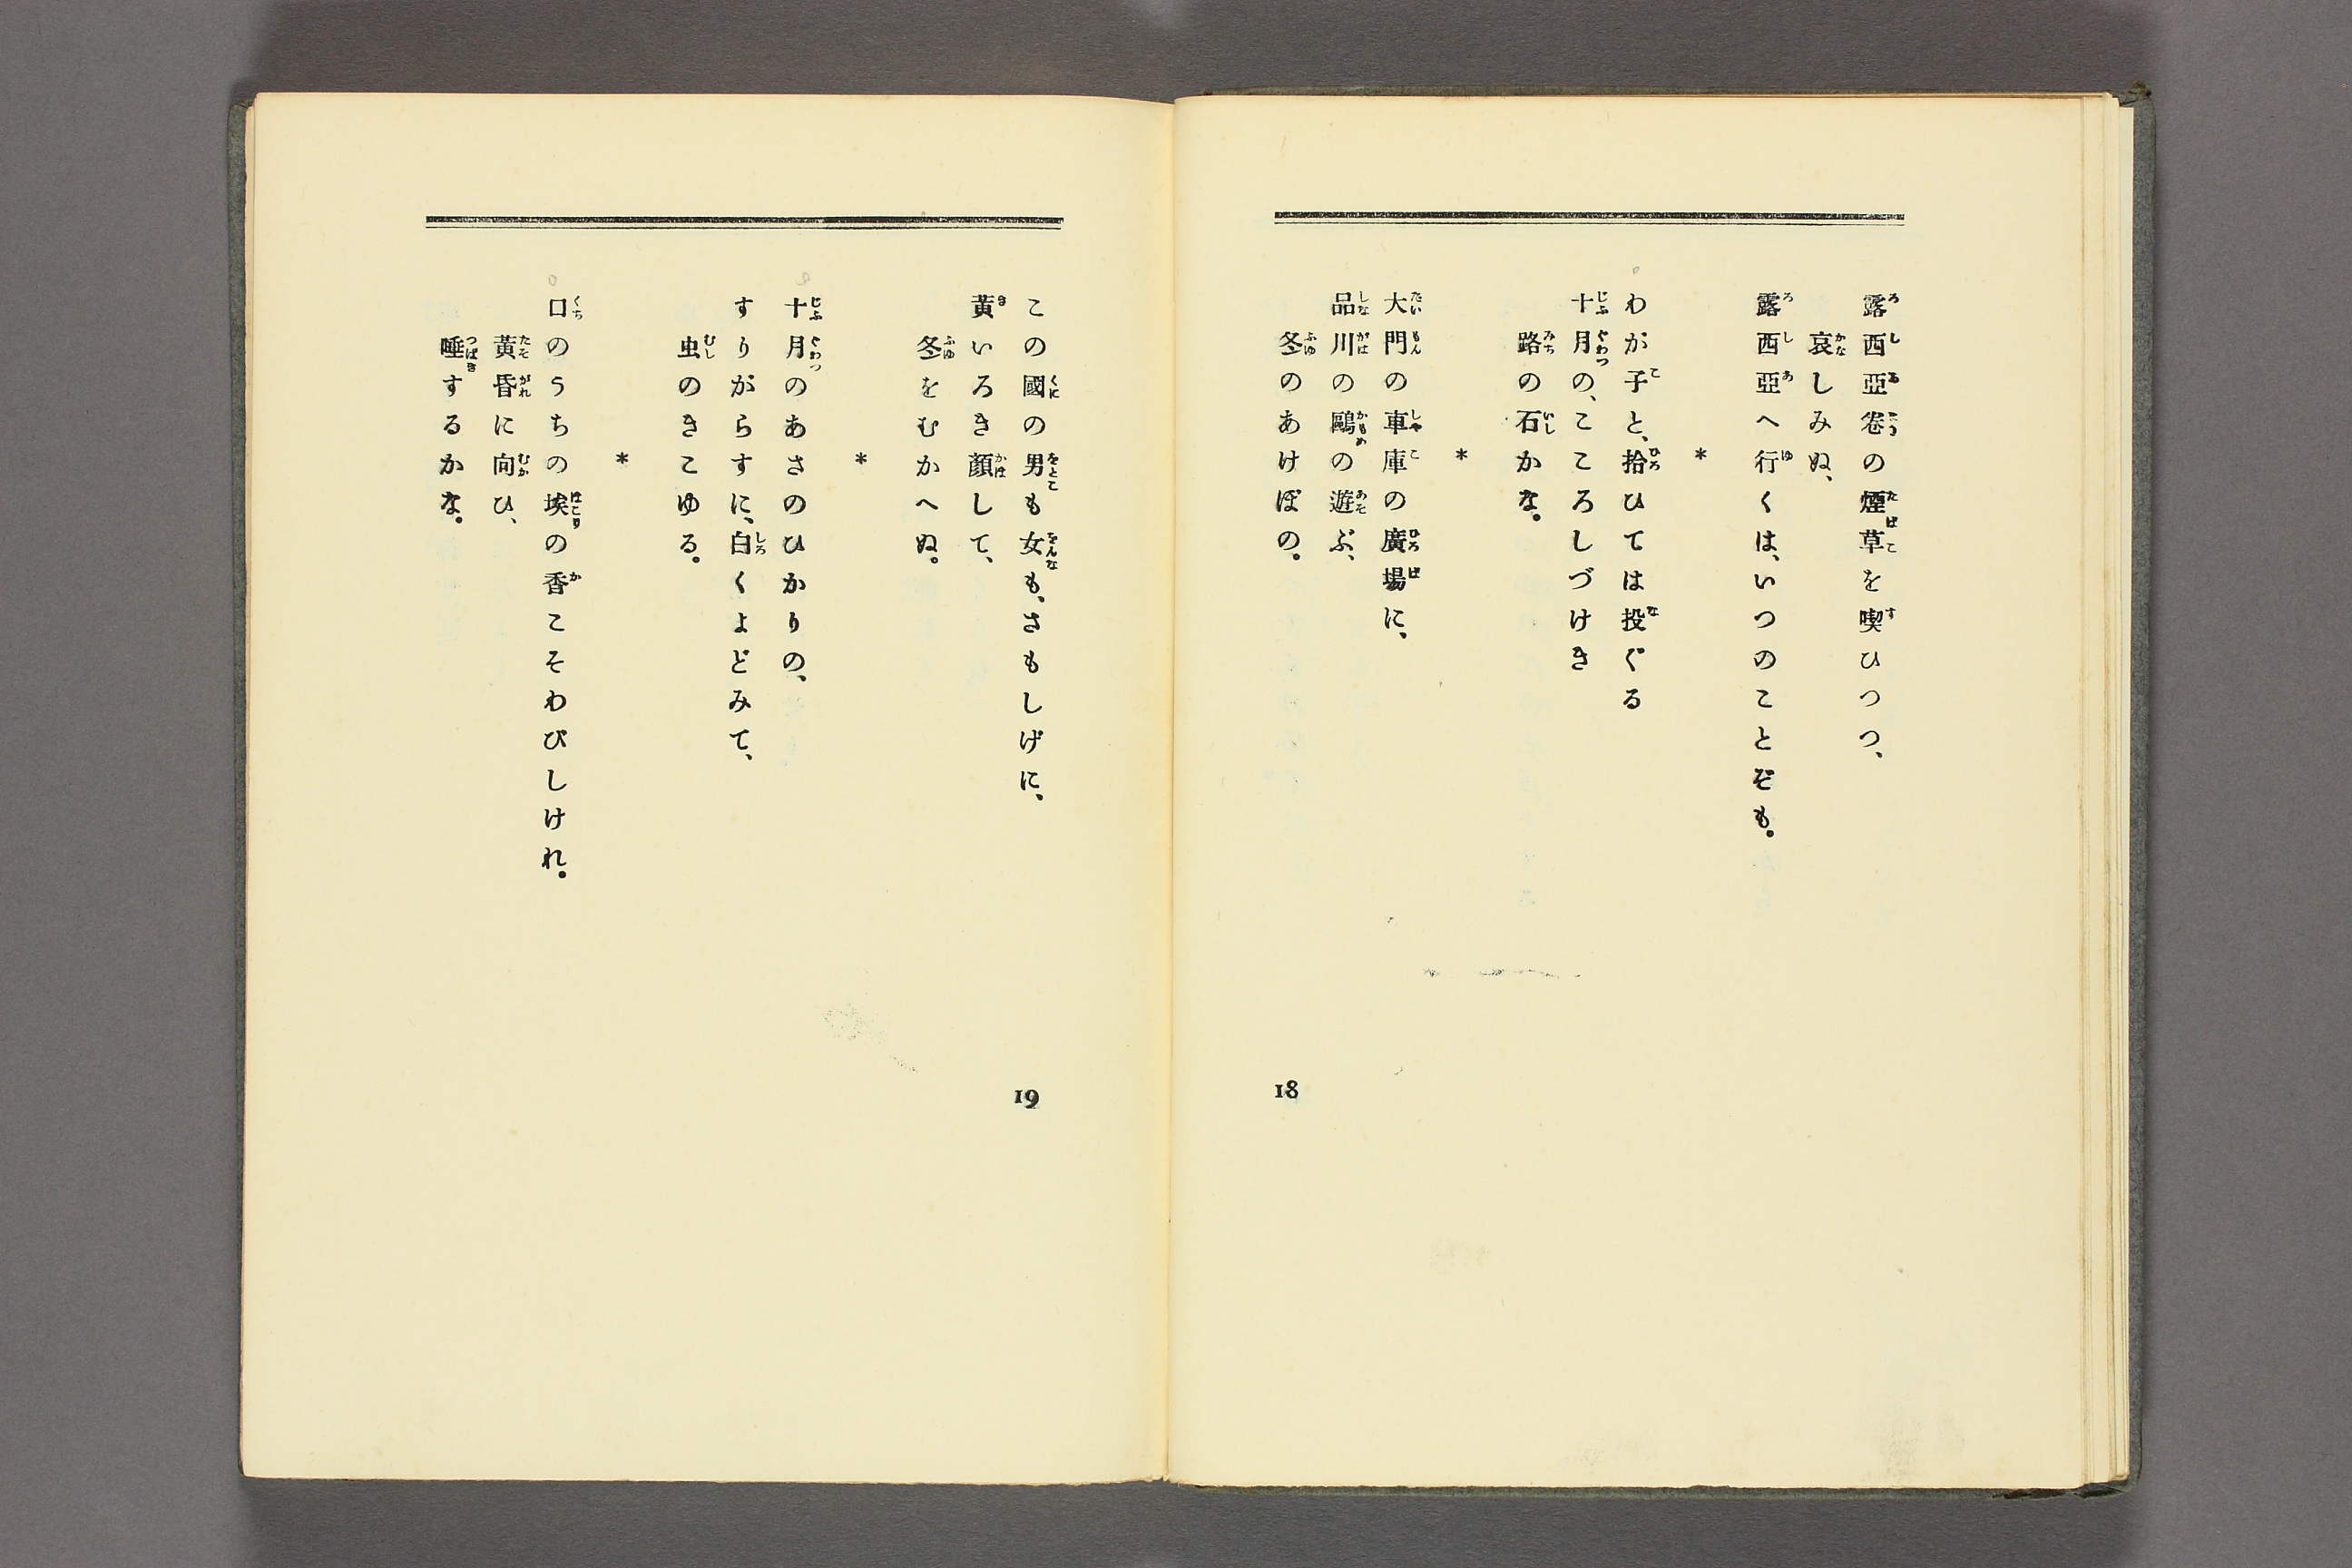 露西亞卷の煙草を喫ひつつ、
哀しみぬ、
露西亞へ行くは、いつのことぞも。
*
わが子と、拾ひては投ぐる
十月の、こころしづけき
路の石かな。
*
大門の車庫の廣場に、
品川の鷗の遊ぶ、
冬のあけぼの。
18
この國の男も女も、さもしげに、
黄いろき顏して、
冬をむかへぬ。
*
十月のあさのひかりの、
すりがらすに、白くよどみて、
虫のきこゆる。
*
口のうちの埃の香こそわびしけれ。
黄昏に向ひ、
唾するかな。
19